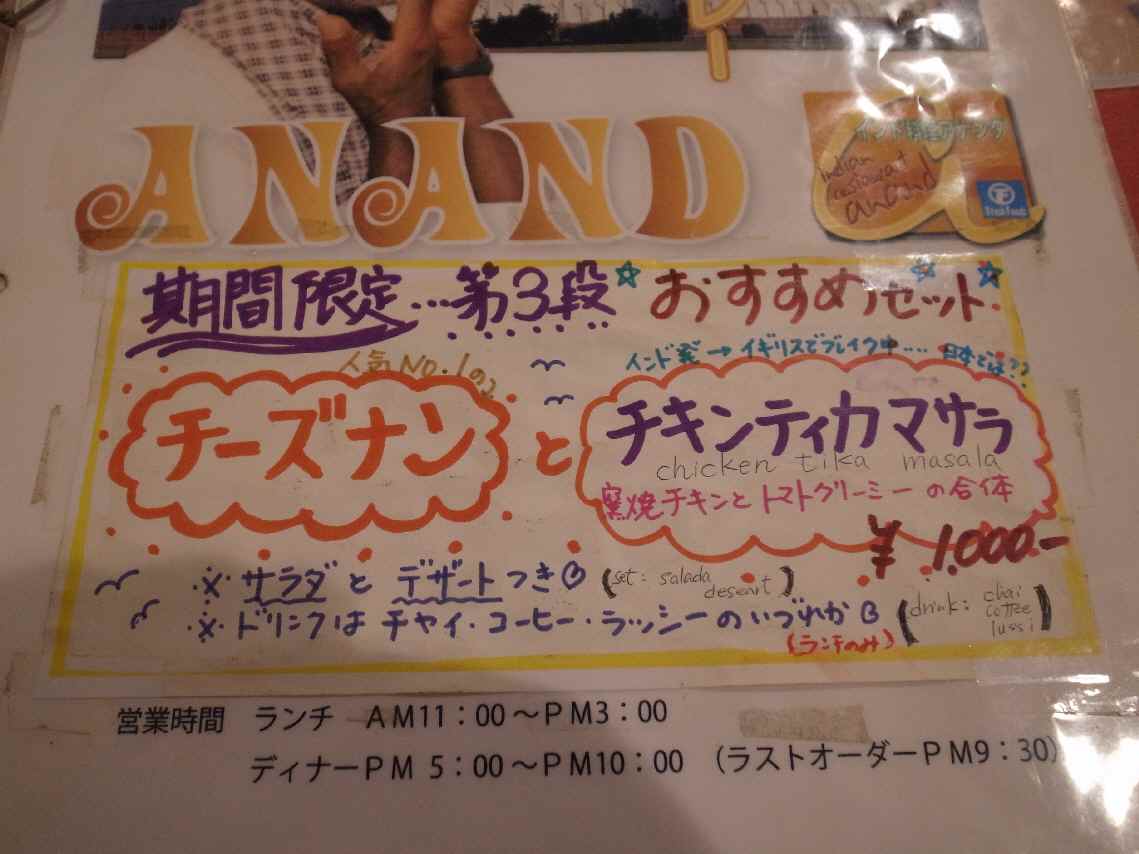 ANAND
Indian
restaurant
anand
期間限定…第3段 おすすめセット
人気NO.1の
インド発→イギリスでブレイク中…. 日本では??
チーズナン と チキンティカマサラ
chicken tika masala
窯焼チキンとトマトクリーミーの合体
¥1.000-
※ サラダと デザートつき (set: salada
deseart)
※ ドリンクは チャイ・コーヒー・ラッシーのいづれか (drink: chai
coffee
lussi)
(ランチのみ)
営業時間 ランチ AM11:00~PM3:00
ディナーPM 5:00~PM10:00 (ラストオーダーPM9:30)